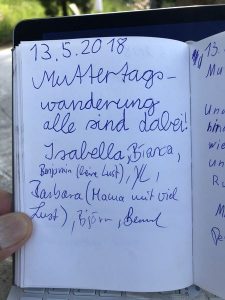 13.5.2018
Muttertags-
wanderung
alle sind dabei!
Isabella, Bianca,
Benjamin (keine Lust),
Barbara (Mama mit viel
Lust), Björn,
13.
Mu
Un
wie
un
R
M